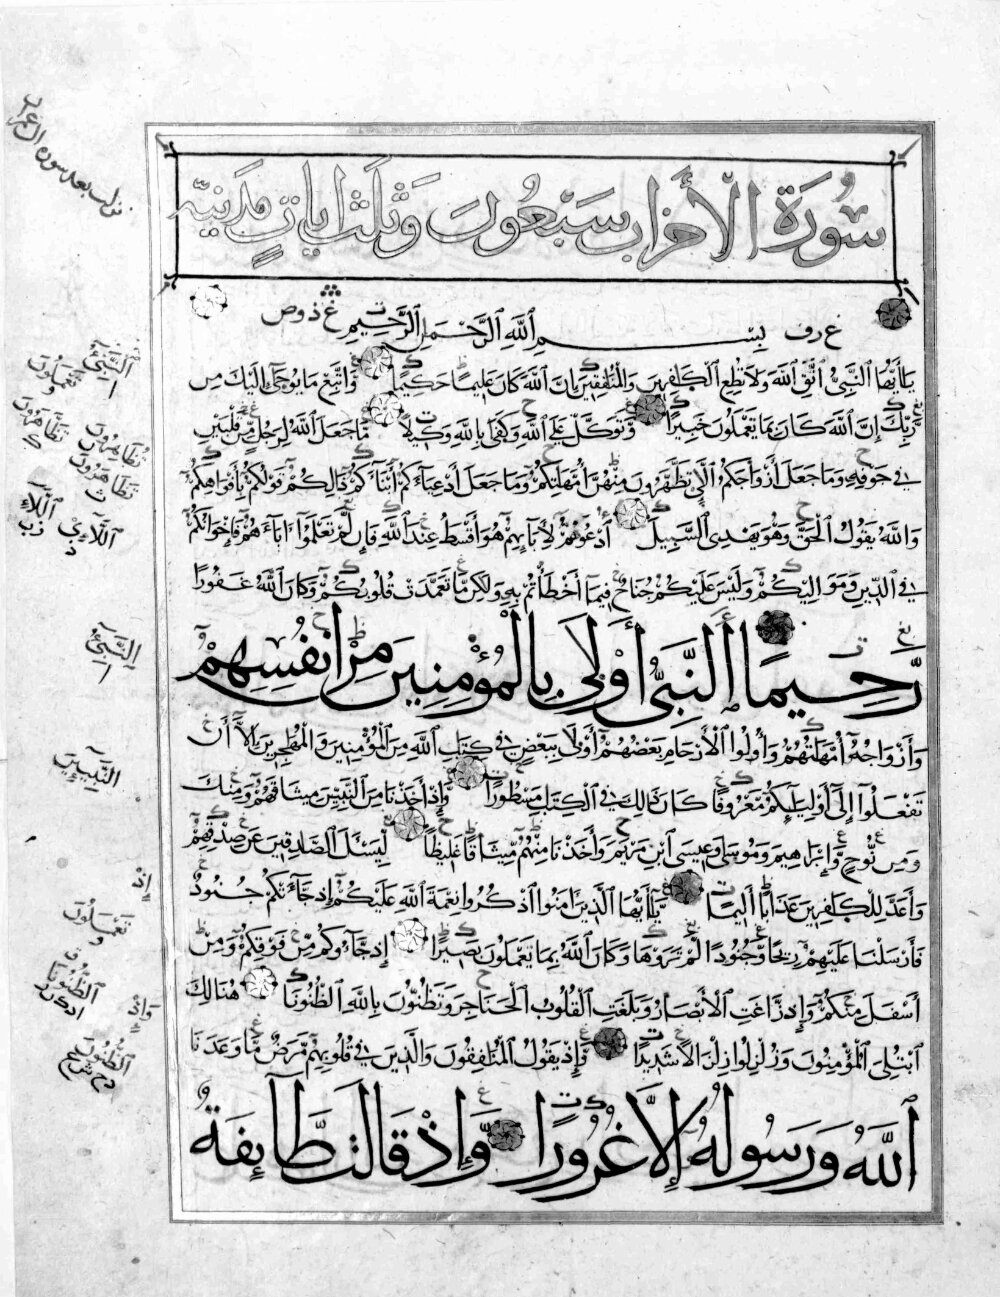 سُورَةُ الْأَحْزَابِ سَبْعُونَ وَثَلَثُ اٰيَاتٍ مَدَنِيَّة
بِسْمِ ٱللَّهِ ٱلرَّحْمَٰنِ ٱلرَّحِيمِ
يَاأَيُّهَا ٱلنَّبِىُّ ٱتَّقِ ٱللَّهَ وَلَا تُطِعِ ٱلْكَٰفِرِينَ وَٱلْمُنَٰفِقِينَ إِنَّ ٱللَّهَ كَانَ عَلِيمًا حَكِيمًا وَٱتَّبِعْ مَا يُوحَىٰٓ إِلَيْكَ مِن
رَّبِّكَ إِنَّ ٱللَّهَ كَانَ بِمَا تَعْمَلُونَ خَبِيرًا وَتَوَكَّلْ عَلَى ٱللَّهِ وَكَفَىٰ بِٱللَّهِ وَكِيلًا مَّا جَعَلَ ٱللَّهُ لِرَجُلٍ مِّن قَلْبَيْنِ
فِى جَوْفِهِۦ وَمَا جَعَلَ أَزْوَاجَكُمُ ٱلَّٰٓـِٔى تَظَّهَّرُونَ مِنْهُنَّ أُمَّهَٰتِكُمْ وَمَا جَعَلَ أَدْعِيَآءَكُمْ أَبْنَآءَكُمْ ذَٰلِكُمْ قَوْلُكُم بِأَفْوَاهِكُمْ
وَٱللَّهُ يَقُولُ ٱلْحَقَّ وَهُوَ يَهْدِى ٱلسَّبِيلَ ٱدْعُوهُمْ لِأٓبَآئِهِمْ هُوَ أَقْسَطُ عِندَ ٱللَّهِ فَإِن لَّمْ تَعْلَمُوٓا۟ ءَابَآءَهُمْ فَإِخْوَانُكُمْ
فِى ٱلدِّينِ وَمَوَالِيكُمْ وَلَيْسَ عَلَيْكُمْ جُنَاحٌ فِيمَآ أَخْطَأْتُم بِهِۦ وَلَٰكِن مَّا تَعَمَّدَتْ قُلُوبُكُمْ وَكَانَ ٱللَّهُ غَفُورًا
رَّحِيمًا ٱلنَّبِىُّ أَوْلَىٰ بِٱلْمُؤْمِنِينَ مِنْ أَنفُسِهِمْ
وَأَزْوَاجُهُۥٓ أُمَّهَاتُهُمْ وَأُو۟لُوا ٱلْأَرْحَامِ بَعْضُهُمْ أَوْلَىٰ بِبَعْضٍ فِى كِتَٰبِ ٱللَّهِ مِنَ ٱلْمُؤْمِنِينَ وَٱلْمُهَٰجِرِينَ إِلَّآ أَن
تَفْعَلُوٓا إِلَىٰٓ أَوْلِيَآئِكُم مَّعْرُوفًا كَانَ ذَالِكَ فِى ٱلْكِتَٰبِ مَسْطُورًا وَإِذْ أَخَذْنَا مِنَ ٱلنَّبِيِّينَ مِيثَاقَهُمْ وَمِنكَ
وَمِن نُّوحٍ وَإِبْرَاهِيمَ وَمُوسَىٰ وَعِيسَى ٱبْنِ مَرْيَمَ وَأَخَذْنَا مِنْهُم مِّيثَاقًا غَلِيظًا لِّيَسْـَٔلَ ٱلصَّادِقِينَ عَن صِدْقِهِمْ
وَأَعَدَّ لِلْكَافِرِينَ عَذَابًا أَلِيمًا يَٰٓأَيُّهَا ٱلَّذِينَ ءَامَنُوا ٱذْكُرُوا نِعْمَةَ ٱللَّهِ عَلَيْكُمْ إِذْ جَآءَتْكُمْ جُنُودٌ
فَأَرْسَلْنَا عَلَيْهِمْ رِيحًا وَجُنُودًا لَّمْ تَرَوْهَا وَكَانَ ٱللَّهُ بِمَا تَعْمَلُونَ بَصِيرًا إِذْ جَآءُوكُم مِّن فَوْقِكُمْ وَمِنْ
أَسْفَلَ مِنكُمْ وَإِذْ زَاغَتِ ٱلْأَبْصَارُ وَبَلَغَتِ ٱلْقُلُوبُ ٱلْحَنَاجِرَ وَتَظُنُّونَ بِٱللَّهِ ٱلظُّنُونَا هُنَالِكَ
ٱبْتُلِىَ ٱلْمُؤْمِنُونَ وَزُلْزِلُوا زِلْزَالًا شَدِيدًا وَإِذْ يَقُولُ ٱلْمُنَٰفِقُونَ وَٱلَّذِينَ فِى قُلُوبِهِم مَّرَضٌ مَّا وَعَدَنَا
ٱللَّهُ وَرَسُولُهُۥٓ إِلَّا غُرُورًا وَإِذْ قَالَت طَّآئِفَةٌ
نزلت بعد سورة آل عمران
ٱلنَّبِىٓءُ
يَعْمَلُونَ
تَظَّاهَرُونَ
تُظَاهِرُونَ
تَظَاهَرُونَ
ٱللَّآءِ
ٱللَّآءِى
ٱلنَّبِىٓءُ
ٱلنَّبِيٓـِٔينَ
إِذْ
يَعْمَلُونَ
ٱلظُّنُونَا
وَإِذْ
ٱلظُّنُونَ